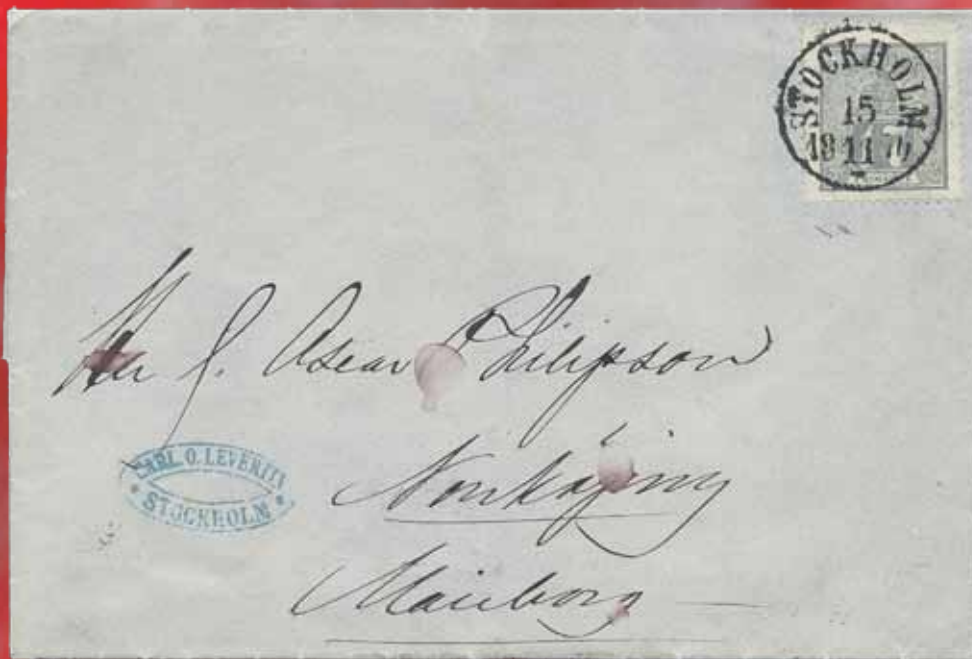 STOCKHOLM
15
11
17
Oscar Philipson
CARL O. LEVERTIN
STOCKHOLM
Norrköping
Marieborg